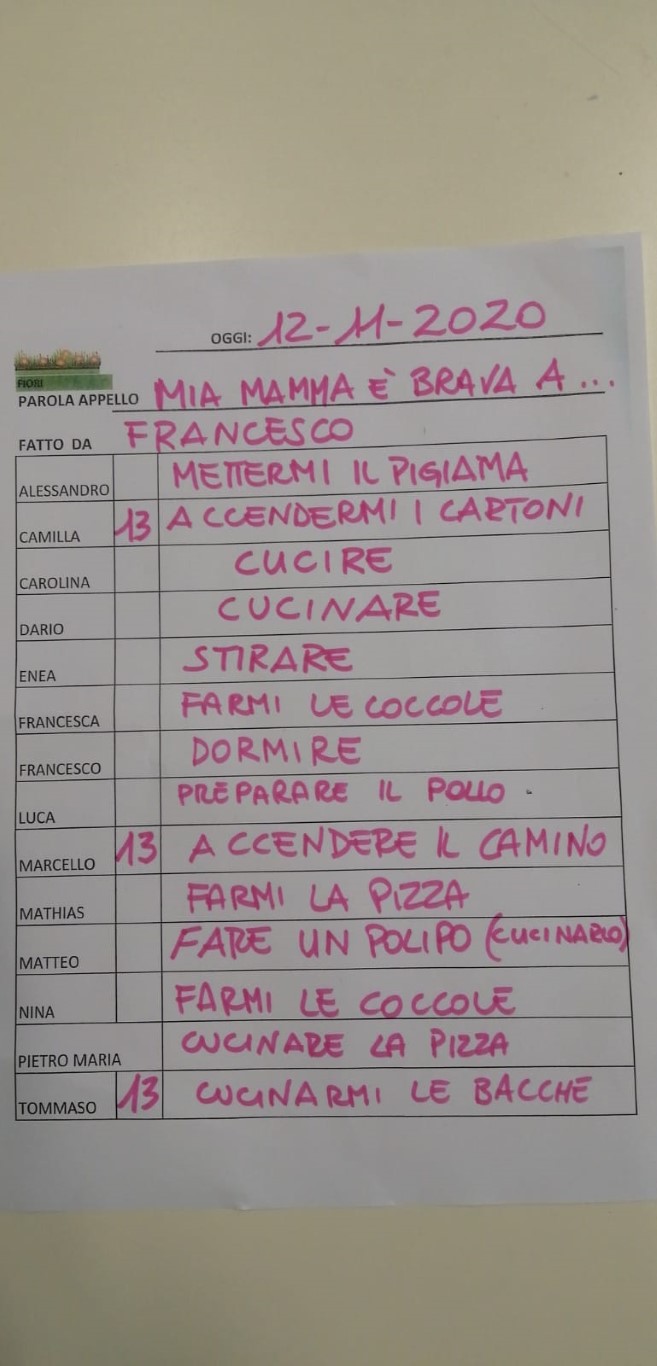 OGGI: 12-11-2020
FIORI
PAROLA APPELLO MIA MAMMA È BRAVA A...
FATTO DA FRANCESCO
ALESSANDRO METTERMI IL PIGIAMA
CAMILLA 13 ACCENDERMI I CARTONI
CAROLINA CUCIRE
DARIO CUCINARE
ENEA STIRARE
FRANCESCA FARMI LE COCCOLE
FRANCESCO DORMIRE
LUCA PREPARARE IL POLLO
MARCELLO 13 ACCENDERE IL CAMINO
MATHIAS FARMI LA PIZZA
MATTEO FARE UN POLIPO (CUCINARLO)
NINA FARMI LE COCCOLE
PIETRO MARIA CUCINARE LA PIZZA
TOMMASO 13 CUCINARMI LE BACCHE